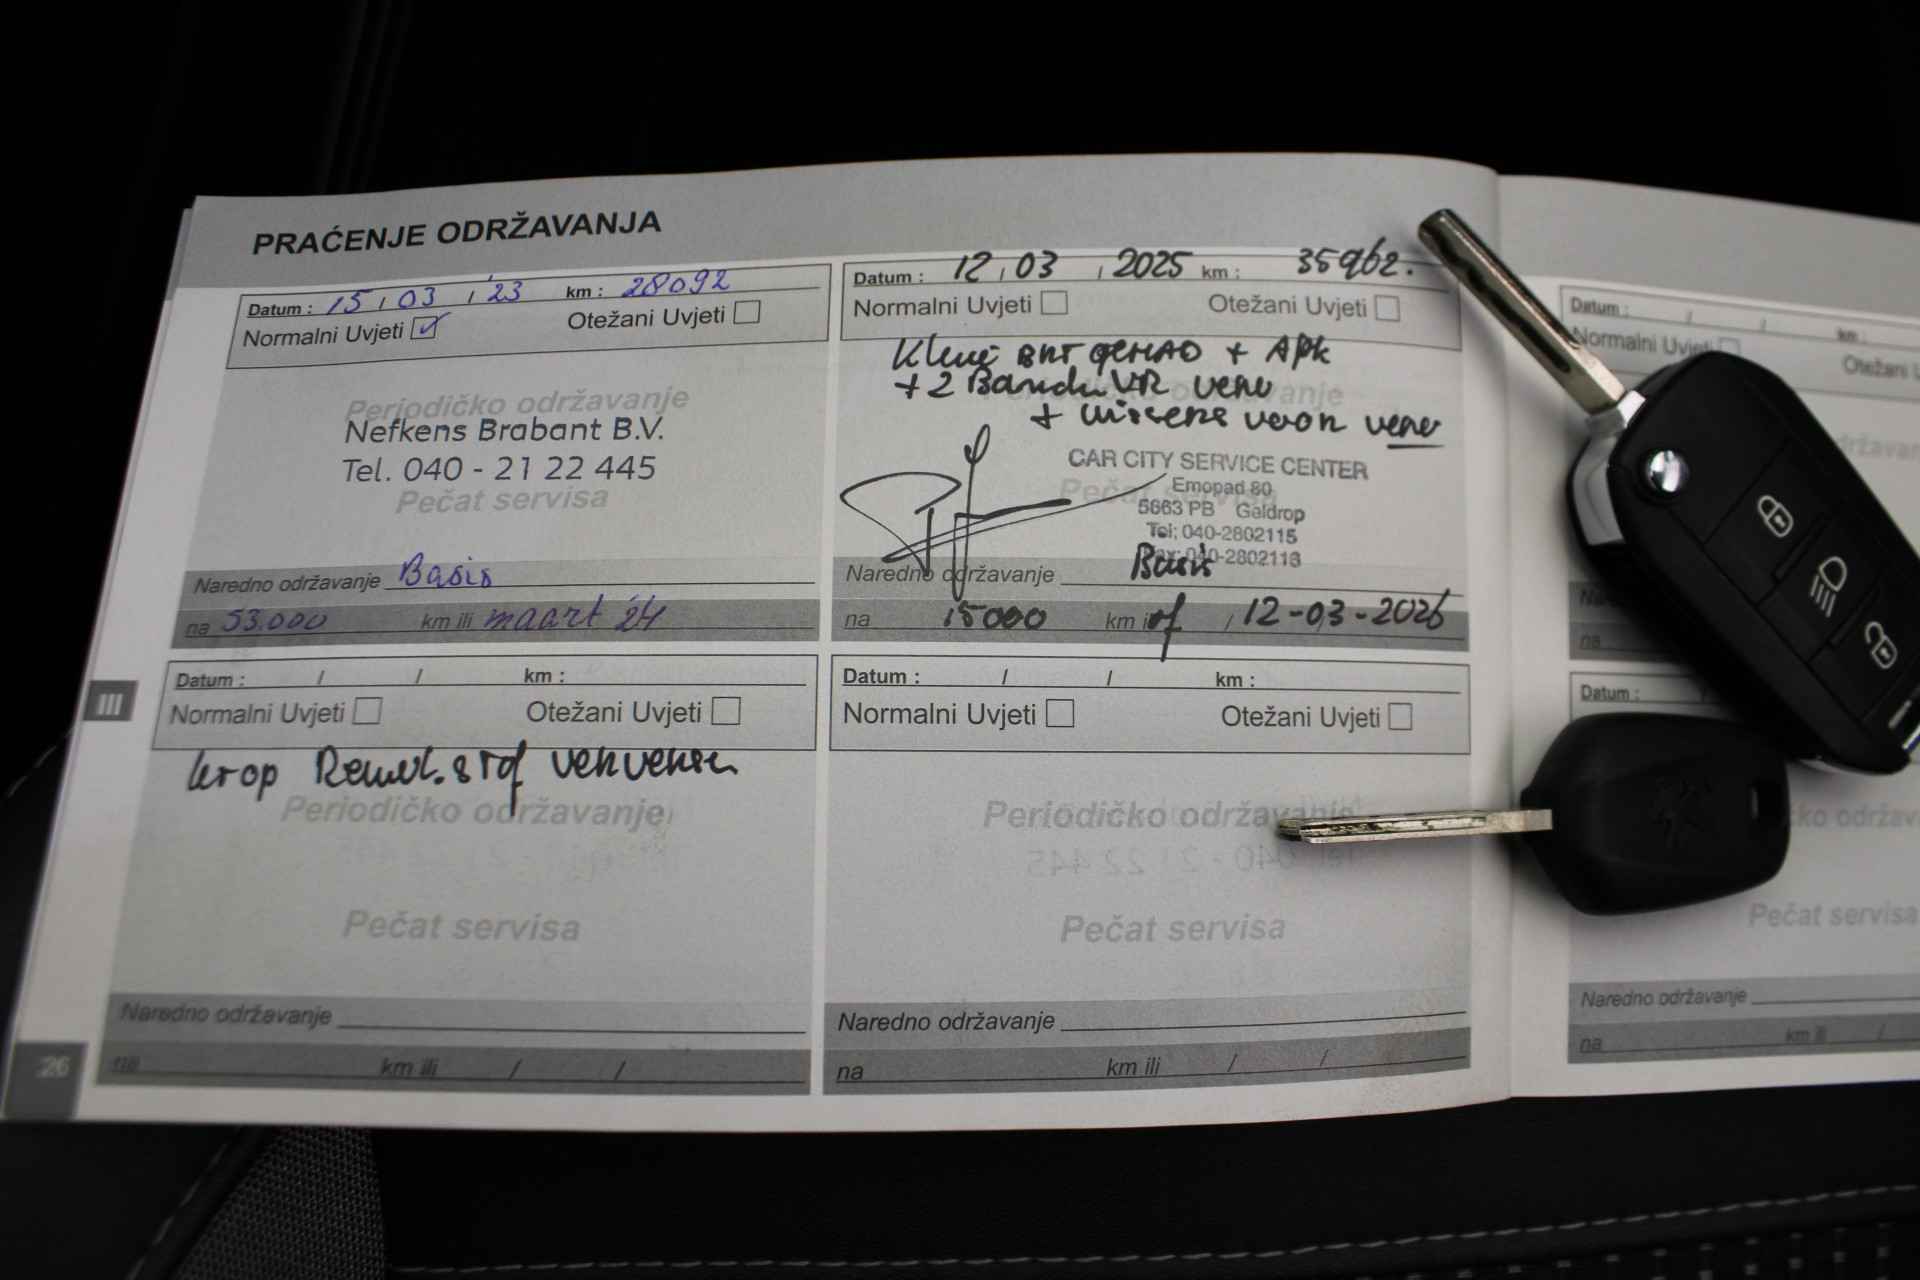 PRAĆENJE ODRŽAVANJA
Datum : 15 / 03 / '23 km : 28092
Normalni Uvjeti Otežani Uvjeti
Periodičko održavanje
Nefkens Brabant B.V.
Tel. 040 - 21 22 445
Pečat servisa
Naredno održavanje Basis
na 53.000 km ili maart '24
Datum : 12 / 03 / 2025 km : 35962.
Normalni Uvjeti Otežani Uvjeti
+ APK
+ 2 Banden VR
+
CAR CITY SERVICE CENTER
Emopad 80
5663 PB Galdrop
Tel: 040-2802115
Fax: 040-2802113
Naredno održavanje Basis
na 15000 km of / 12-03-2026
Datum : / / km :
Normalni Uvjeti Otežani Uvjeti
Periodičko održavanje
Pečat servisa
Naredno održavanje
na km ili / /
Datum : / / km :
Normalni Uvjeti Otežani Uvjeti
Periodičko održavanje
Pečat servisa
Naredno održavanje
na km ili / /
III
26
Datum : / / km :
Normalni Uvjeti
Datum :
Pečat servisa
Naredno održavanje
na km ili /